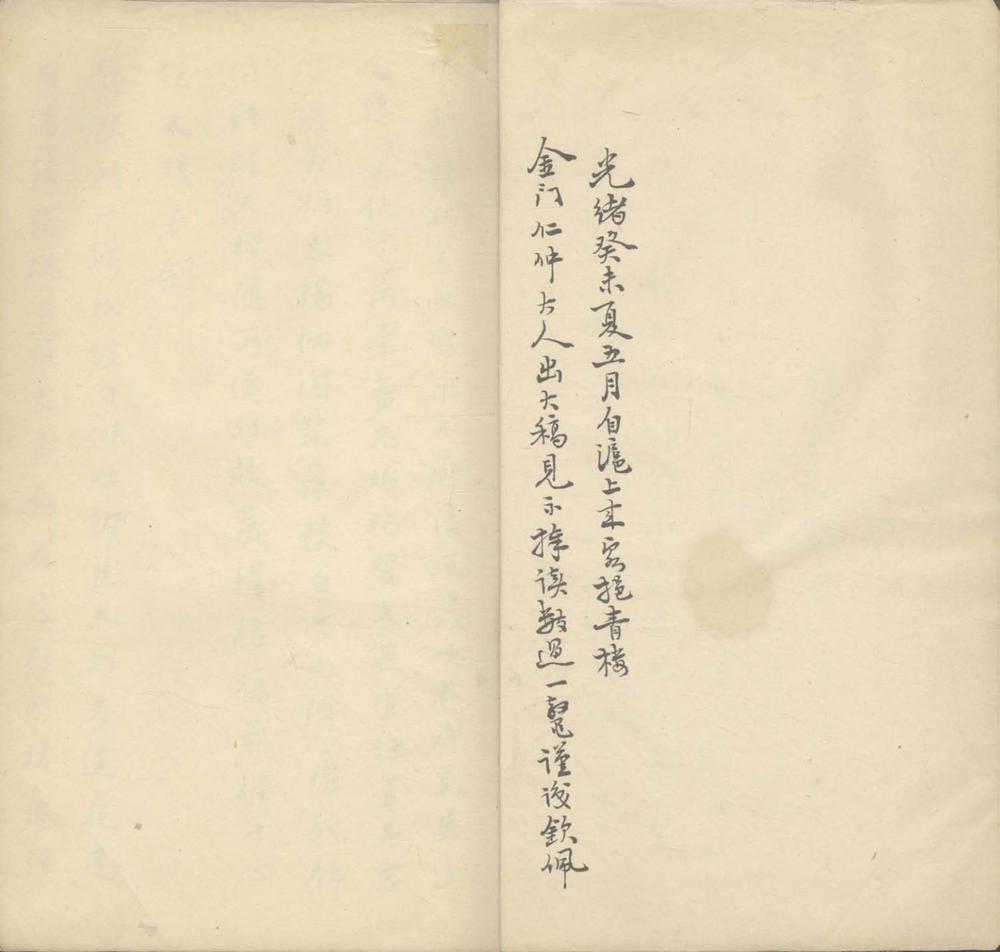 光緒癸未夏五月自滬上來客挹青樓
金門仁仲大人出大稿見示捧讀數過一鼇謹識欽佩